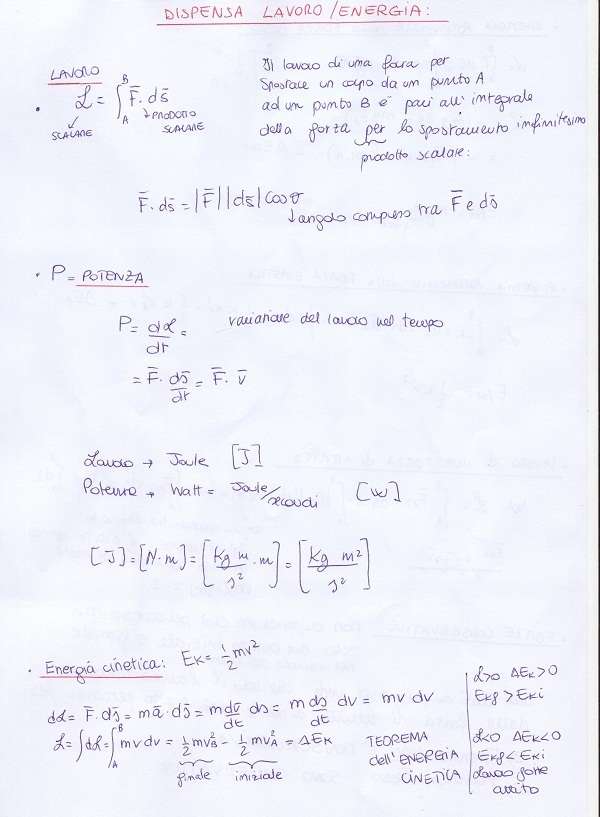 DISPENSA LAVORO/ENERGIA:
LAVORO
• L = ∫_A^B F̄ · ds̄
↓ SCALARE
↳ PRODOTTO SCALARE
Il lavoro di una forza per
spostare un corpo da un punto A
ad un punto B e' pari all' integrale
della forza per lo spostamento infinitesimo
prodotto scalare:
F̄ · ds̄ = |F̄| |ds̄| cos σ
↳ angolo compreso tra F̄ e ds̄
• P = POTENZA
P = dL/dt = variazione del lavoro nel tempo
= F̄ · ds̄/dt = F̄ · v̄
Lavoro → Joule [J]
Potenza → Watt = Joule/secondi [W]
[J] = [N · m] = [Kg m/s² · m] = [Kg m²/s²]
• Energia cinetica: EK = 1/2 mv²
dL = F̄ · ds̄ = mā · ds̄ = m dv/dt ds = m ds/dt dv = mv dv
L = ∫dL = ∫_A^B mv dv = 1/2 mv²_B - 1/2 mv²_A = ΔEK
finale iniziale
TEOREMA
dell'ENERGIA
CINETICA
L>0 ΔEK>0
EKf > EKi
L<0 ΔEK<0
EKf < EKi
Lavoro forze
attrito